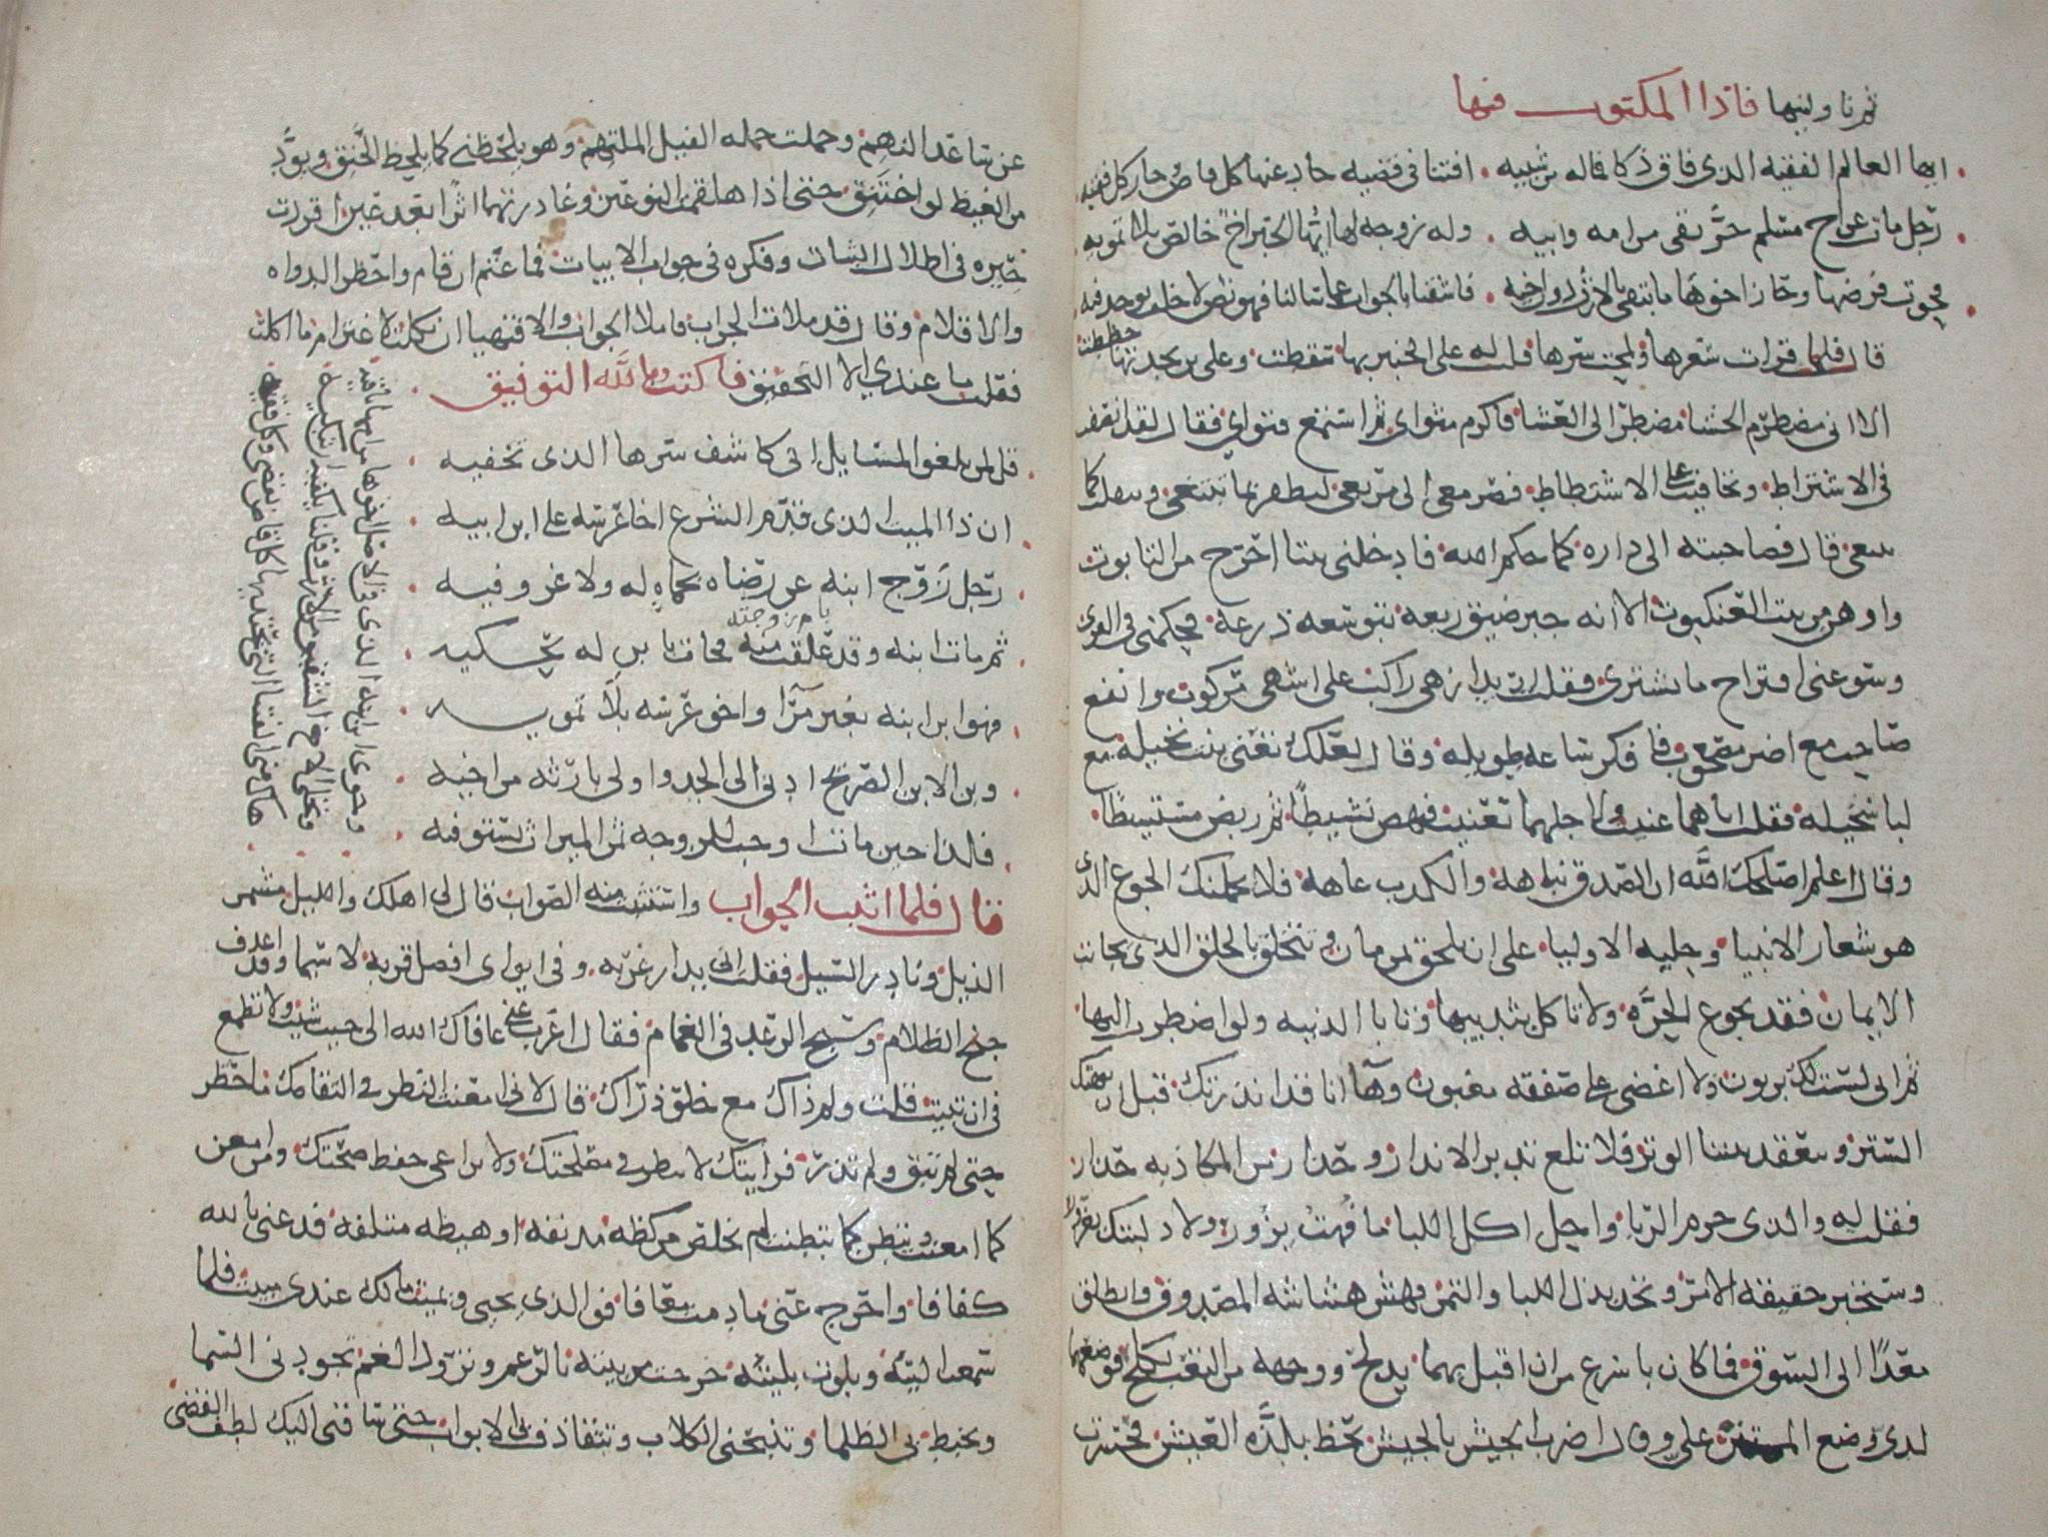 ثم ناولنيها فاذا المكتوب فيها
ايها العالم الفقيه الذي فاق ذكا فماله من شبيه افتنا في قضيه حاد عنها كل قاض وحار كل فقيه
رجل مات عن اخ مسلم حر تقي من امه وابيه وله زوجه لها ايها الحبر اخ خالص بلا تمويه
فحوت فرضها وحاز اخوها ما تبقى بالارث دون اخيه فاشفنا بالجواب عما سالنا فهو نص لا خلف يوجد فيه
قال فلما قرات شعرها ولمحت سرها قلت له على الخبير بها سقطت وعلى بن بجدتها حططت
الا اني مضطرم الحشا مضطر الى العشا فاكرم مثواي ثم استمع فتواي فقال لقد انصفت
في الاشتراط وتجافيت عن الاشتطاط فصر معي الى مربعي لتظفر بما تبتغي وتنقلب كما
ينبغي قال فصاحبته الى داره كما حكم الله فادخلني بيتا احرج من التابوت
واوهن من بيت العنكبوت الا انه جبر ضيق ربعه بتوسعه ذرعه فحكمني في القرى
وسوغني اقتراح ما يشترى فقلت اريد ازهى راكب على اشهى مركوب وانفع
صاحب مع اضر مصحوب فافكر ساعه طويله وقال لعلك تعني بنت نخيله مع
لبا سخيله فقلت اياهما عنيت ولاجلهما تعنيت فنهض نشيطا ثم ربض مستشيطا
وقال اعلم اصلحك الله ان الصدق نباهه والكذب عاهه فلا يحملنك الجوع الذي
هو شعار الانبيا وحليه الاوليا على ان تلحق بمن مان وتتخلق بالخلق الذي يجانب
الايمان فقد تجوع الحره ولا تاكل بثدييها وتابا الدنيه ولو اضطرت اليها
ثم اني لست لك بزبون ولا اغضي على صفقه مغبون وها انا قد انذرتك قبل ان ينهتك
الستر وينعقد بيننا الوتر فلا تلغ تدبر الانذار وحذار من المكاذبه حذار
فقلت له والذي حرم الربا واحل اكل اللبا ما فهت بزور ولا دليتك بغرور
وستخبر حقيقه الامر وتحمد بذل اللبا والتمر فهش هشاشه المصدوق وانطلق
مغذا الى السوق فما كان باسرع من ان اقبل بهما يدلح ووجهه من التعب يكلح فوضعهما
لدي وضع الممتن علي وقال اضرب الجيش بالجيش تحظ بلذه العيش فحسرت
عن ساعد النهم وحملت حمله الفيل الملتهم وهو يلحظني كما يلحظ الحنق ويود
من الغيظ لو اختنق حتى اذا هلقمت النوعين وغادرتهما اثرا بعد عين اقردت
حيره في اظلال البيات وفكره في جواب الابيات فما عتم ان قام واحظر الدواه
والاقلام وقال قد ملات الجراب فاملا الجواب والا فتهيا ان نكلت لاغترام ما اكلت
فقلت ما عندي الا التحقيق فاكتب وبالله التوفيق
قل لمن يلغز المسايل اني كاشف سرها الذي تخفيه
ان ذا الميت الذي قدم الشرع اخا عرسه على ابن ابيه
رجل زوج ابنه عن رضاه بحماه له ولا غرو فيه
ثم مات ابنه وقد علقت منه فجات بابن له يحكيه
فهو ابن ابنه بغير مرا واخو عرسه بلا تمويه
وبن الابن الصريح ادنى الى الجد واولى بارثه من اخيه
فلذا حين مات اوجب للزوجه ثمن الميراث تستوفيه
وحوى ابن ابنه الذي هو في الاصل اخوها من امها باقيه
وتخلى الاخ الشقيق من الارث وقلنا يكفيك ان تبكيه
هاك مني الفتيا التي يحتذيها كل قاض يقضي وكل فقيه
قال فلما اثبت الجواب واستثبت منه الصواب قال لي اهلك والليل فشمر
الذيل وبادر السيل فقلت اني بدار غربه وفي ايواي افضل قربه لا سيما وقد اغدف
جنح الظلام وسبح الرعد في الغمام فقال اغرب عني عافاك الله الى حيث شيت ولا تطمع
في ان تبيت فقلت ولم ذاك مع خلو ذراك قال لاني امعنت النظر في التقامك ما حظر
حتى لم تبق ولم تذر فرايتك لا تنظر في مصلحتك ولا تراعي حفظ صحتك ومن امعن
كما امعنت وتبطن كما تبطنت لم يخلص من كظه مدنفه او هيضه متلفه فدعني بالله
كفافا واخرج عني ما دمت معافا فوالذي يحيي ويميت مالك عندي مبيت فلما
سمعت اليته وبلوت بليته خرجت من بيته بالرغم وتزود الغم تجودني السما
وتخبط بي الظلما وتنبحني الكلاب وتتقاذف بي الابواب حتى ساقني اليك لطف القضى